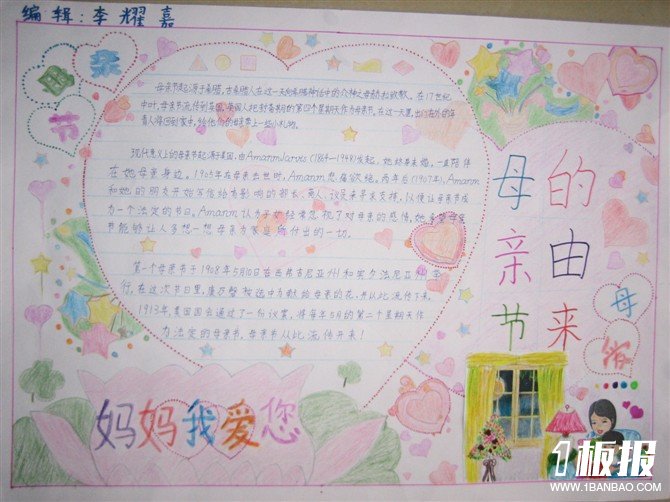 编辑：李耀嘉
母亲节
母亲节起源于希腊，古希腊人在这一天向希腊神话中的众神之母赫拉致敬。在17世纪
中叶，母亲节流传到英国，英国人把封斋期的第四个星期天作为母亲节。在这一天里，出门在外的年
青人将回到家中，给他们的母亲带上一些小礼物。
现代意义上的母亲节起源于美国，由AmanmJarvis（1864—1948）发起，她终身未婚，一直陪伴
在她母亲身边。1905年在母亲去世时，Amanm悲痛欲绝。两年后（1907年），Amanm
和她的朋友开始写信给有影响的部长、商人、议员来寻求支持，以便让母亲节成
为一个法定的节日。Amanm认为子女经常忽视了对母亲的感情，她希望母亲
节能够让人多想一想母亲为家庭所付出的一切。
第一个母亲节于1908年5月10日在西弗吉尼亚州和宾夕法尼亚州举
行，在这次节日里，康乃馨被选中为献给母亲的花，并以此流传下来。
1913年，美国国会通过了一份议案，将每年5月的第二个星期天作
为法定的母亲节，母亲节从此流传开来！
母亲节
的由来
母爱
妈妈我爱您
1板报
WWW.1BANBAO.COM